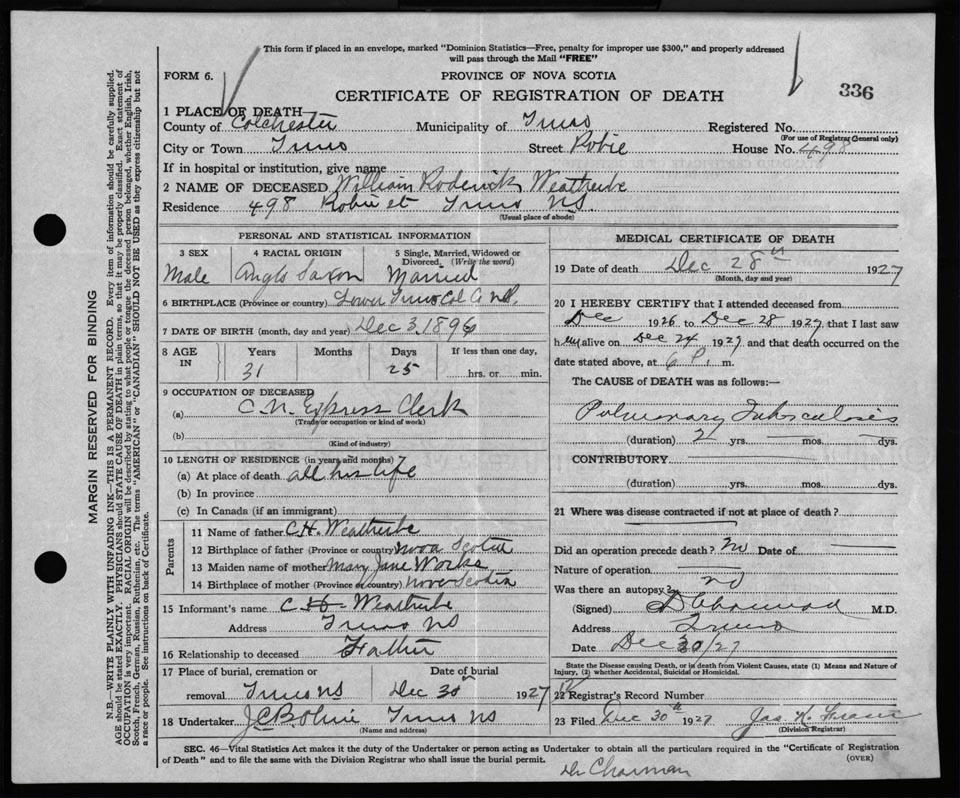 This form if placed in an envelope, marked "Dominion Statistics—Free, penalty for improper use $300," and properly addressed
will pass through the Mail "FREE"
FORM 6.
PROVINCE OF NOVA SCOTIA
336
CERTIFICATE OF REGISTRATION OF DEATH
1 PLACE OF DEATH—
County of Colchester Municipality of Truro Registered No.
(For use of Registrar General only)
City or Town Truro Street Robie House No. 498
If in hospital or institution, give name
2 NAME OF DECEASED William Roderick Weatherbe
Residence 498 Robie st Truro NS.
(Usual place of abode)
PERSONAL AND STATISTICAL INFORMATION
3 SEX 4 RACIAL ORIGIN 5 Single, Married, Widowed or Divorced. (Write the word)
Male Anglo Saxon Married
6 BIRTHPLACE (Province or country) Lower Truro Col Co NS.
7 DATE OF BIRTH (month, day and year) Dec 3, 1896
8 AGE IN Years Months Days If less than one day,
31 25 hrs. or min.
9 OCCUPATION OF DECEASED
(a) C.N. Express Clerk
(Trade or occupation or kind of work)
(b)
(Kind of industry)
10 LENGTH OF RESIDENCE (in years and months)
(a) At place of death all his life
(b) In province
(c) In Canada (if an immigrant)
Parents
11 Name of father C.H. Weatherbe
12 Birthplace of father (Province or country) Nova Scotia
13 Maiden name of mother Mary Jane
14 Birthplace of mother (Province or country) Nova Scotia
15 Informant's name C. H. Weatherbe
Address Truro NS
16 Relationship to deceased Father
17 Place of burial, cremation or Date of burial
removal Truro NS Dec 30 1927
18 Undertaker Truro NS
(Name and address)
MEDICAL CERTIFICATE OF DEATH
19 Date of death Dec 28th 1927
(Month, day and year)
20 I HEREBY CERTIFY that I attended deceased from
Dec 1926 to Dec 28 1927, that I last saw
him alive on Dec 24 1927 and that death occurred on the
date stated above, at 6 P. m.
The CAUSE of DEATH was as follows:—
Pulmonary Tuberculosis
(duration) 2 yrs. mos. dys.
CONTRIBUTORY
(duration) yrs. mos. dys.
21 Where was disease contracted if not at place of death?
Did an operation precede death? no Date of
Nature of operation
Was there an autopsy? no
(Signed) M.D.
Address Truro
Date Dec 30/27
State the Disease causing Death, or in death from Violent Causes, state (1) Means and Nature of
Injury, (2) whether Accidental, Suicidal or Homicidal.
22 Registrar's Record Number
23 Filed Dec 30th 1927 Jas. K. Fraser
(Division Registrar)
SEC. 46—Vital Statistics Act makes it the duty of the Undertaker or person acting as Undertaker to obtain all the particulars required in the "Certificate of Registration
of Death" and to file the same with the Division Registrar who shall issue the burial permit.
(OVER)
MARGIN RESERVED FOR BINDING
N.B.—WRITE PLAINLY WITH UNFADING INK—THIS IS A PERMANENT RECORD. Every item of information should be carefully supplied.
AGE should be stated EXACTLY. PHYSICIANS should STATE CAUSE OF DEATH in plain terms, so that it may be properly classified. Exact statement of
OCCUPATION is very important. RACIAL ORIGIN will be described by stating to what people or tongue the deceased person belonged, whether English, Irish,
Scotch, French, German, Russian, Ruthenian, etc. The terms "AMERICAN" or "CANADIAN" SHOULD NOT BE USED as they express citizenship but not
a race or people. See instructions on back of Certificate.